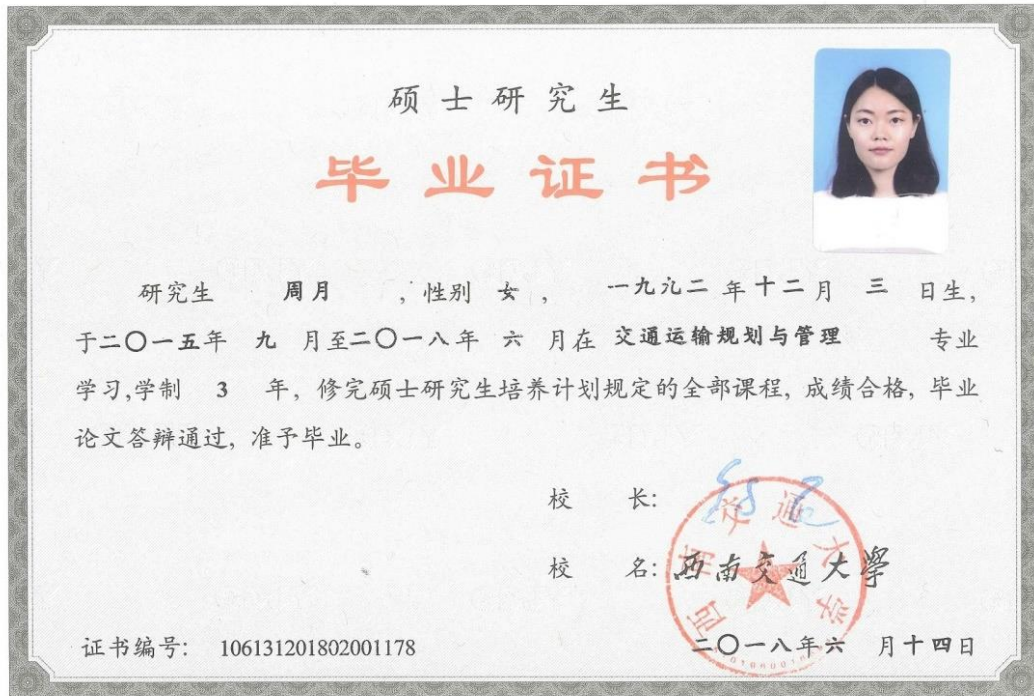 硕士研究生
毕业证书
研究生 周月 ，性别 女 ， 一九九二 年 十二 月 三 日生，
于二〇一五年 九 月至二〇一八年 六 月在 交通运输规划与管理 专业
学习,学制 3 年，修完硕士研究生培养计划规定的全部课程，成绩合格，毕业
论文答辩通过，准予毕业。
校 长:
校 名: 西南交通大学
西南交通大學
证书编号: 106131201802001178
二〇一八年六 月十四日